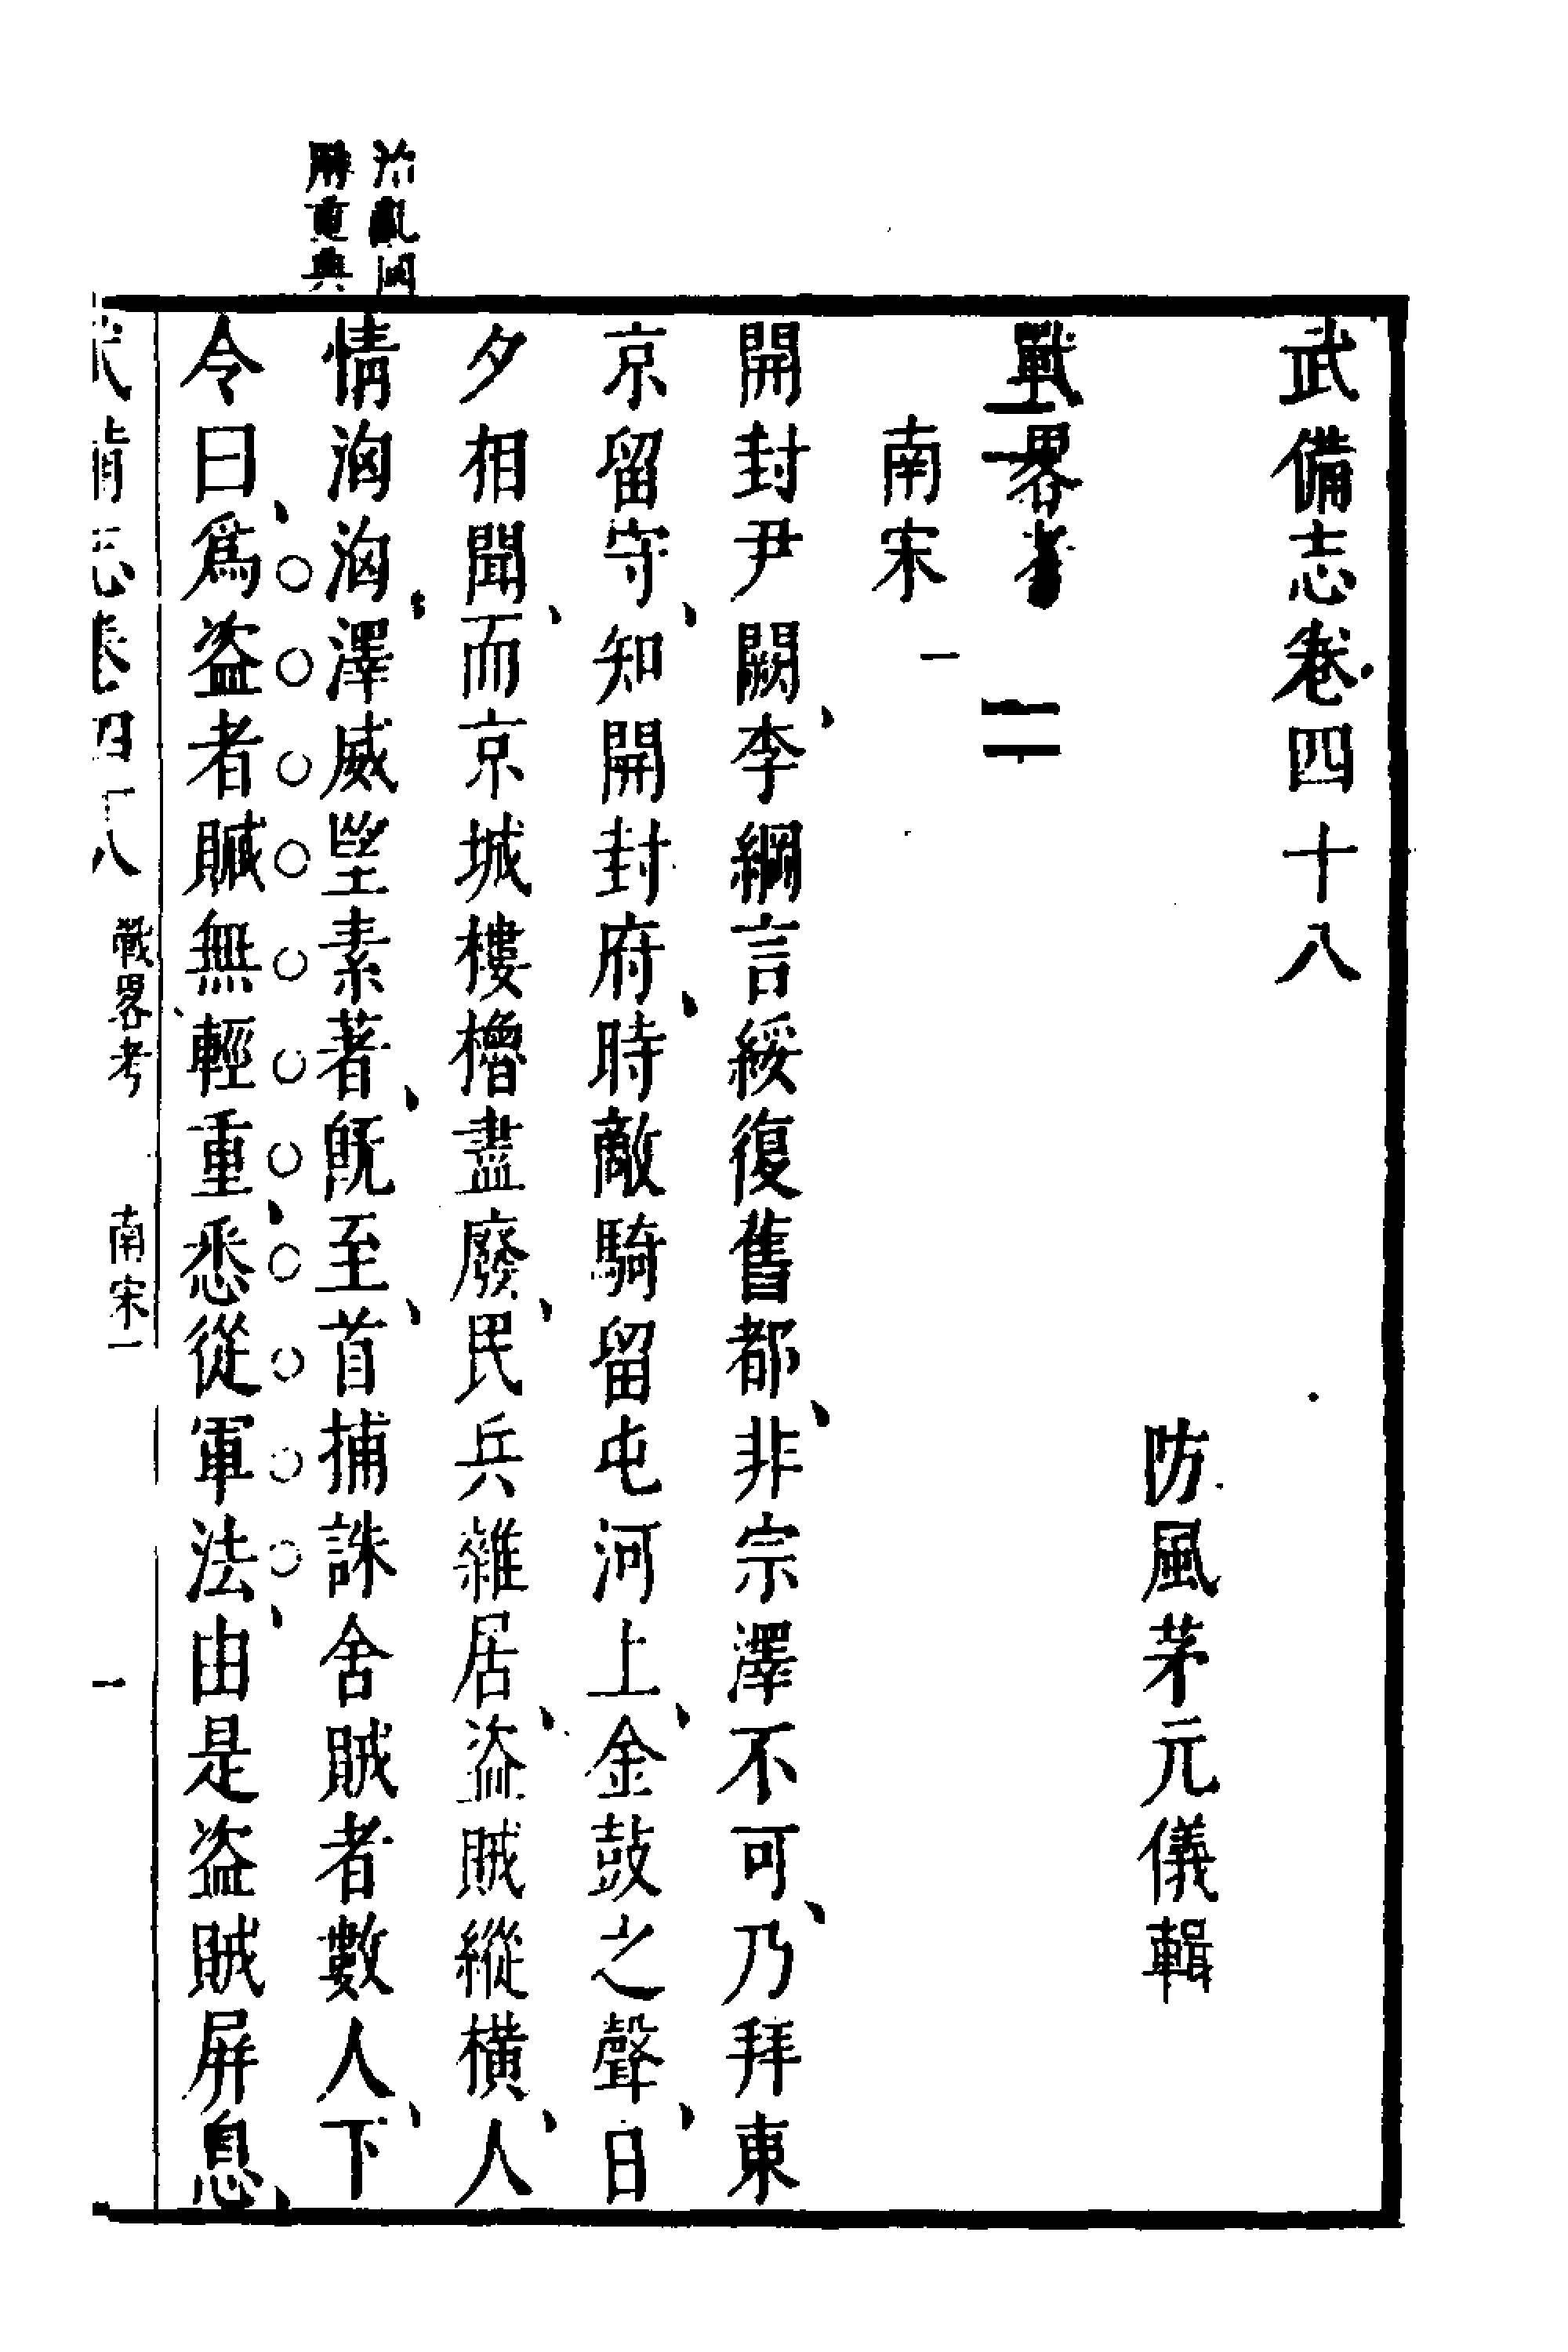 武備志卷四十八
防風茅元儀輯
戰畧考
南宋一
開封尹闕、李綱言綏復舊都、非宗澤不可、乃拜東
京留守、知開封府、時敵騎留屯河上、金鼓之聲、日
夕相聞、而京城樓櫓盡廢、民兵雜居、盜賊縱橫、人
情洶洶、澤威望素著、旣至、首捕誅舍賊者數人、下
令曰、爲盜者贓無輕重、悉從軍法、由是盜賊屏息、
治亂國
用重典
武備志卷四十八 戰畧考 南宋一 一